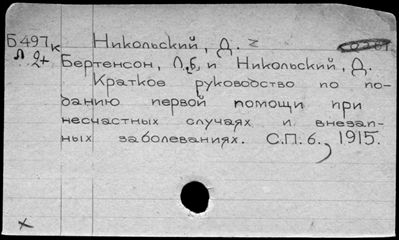 Б497к Никольский, Д.
Л 2+ Бертенсон, Л.Б. и Никольский, Д.
Краткое руководство по по-
данию первой помощи при
несчастных случаях и внезап-
ных заболеваниях. С.П.б., 1915.
x